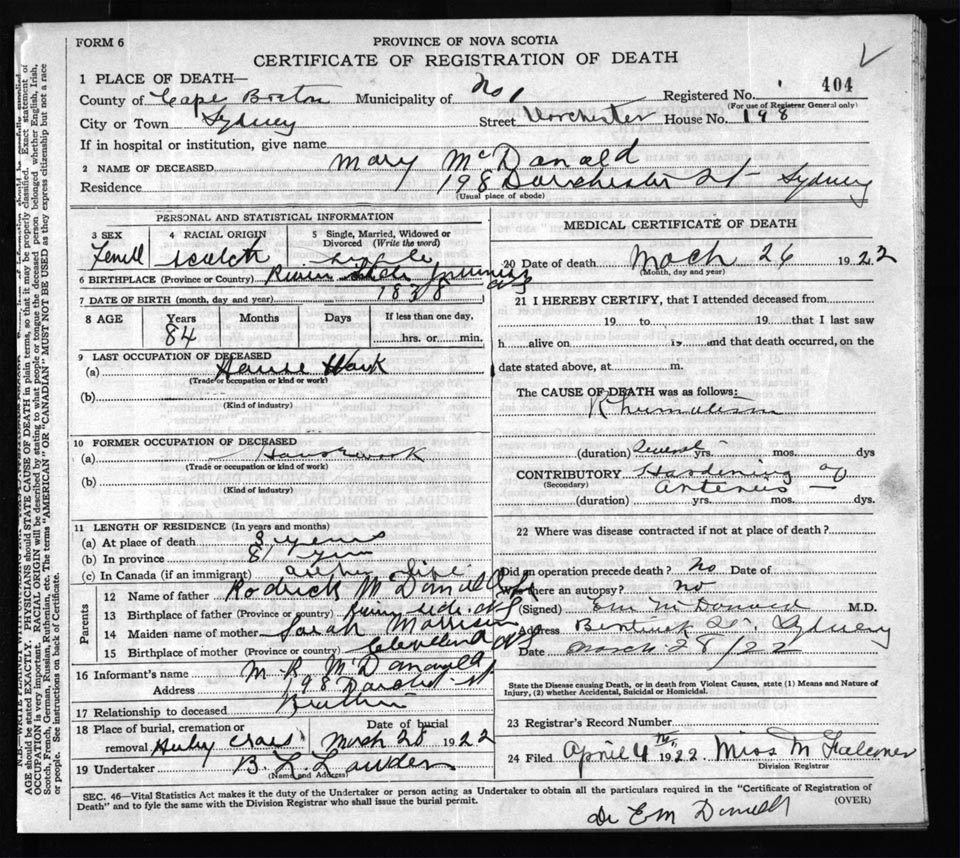 FORM 6
PROVINCE OF NOVA SCOTIA
CERTIFICATE OF REGISTRATION OF DEATH
1 PLACE OF DEATH—
Registered No. 404
(For use of Registrar General only)
County of Cape Breton Municipality of No 1
City or Town Sydney Street Dorchester House No. 198
If in hospital or institution, give name
2 NAME OF DECEASED Mary McDonald
Residence 198 Dorchester St Sydney
(Usual place of abode)
PERSONAL AND STATISTICAL INFORMATION
3 SEX 4 RACIAL ORIGIN 5 Single, Married, Widowed or Divorced (Write the word)
Femell scotch single
6 BIRTHPLACE (Province or Country) River
7 DATE OF BIRTH (month, day and year) 1838
8 AGE Years Months Days If less than one day,
84 hrs. or min.
9 LAST OCCUPATION OF DECEASED
(a) House Work
(Trade or occupation or kind or work)
(b)
(Kind of industry)
10 FORMER OCCUPATION OF DECEASED
(a) Housework
(Trade or occupation or kind or work)
(b)
(Kind of industry)
11 LENGTH OF RESIDENCE (In years and months)
(a) At place of death 8 years
(b) In province
(c) In Canada (if an immigrant)
Parents
12 Name of father Rodrick McDonald
13 Birthplace of father (Province or country)
14 Maiden name of mother Sarah Morrison
15 Birthplace of mother (Province or country) Cleveland NS
16 Informant's name M R McDonald
Address 198 Dorchest St
17 Relationship to deceased
18 Place of burial, cremation or removal Date of burial March 28 1922
19 Undertaker
(Name and Address)
MEDICAL CERTIFICATE OF DEATH
20 Date of death Mach 26 1922
(Month, day and year)
21 I HEREBY CERTIFY, that I attended deceased from
19 to 19 that I last saw
h alive on 19 and that death occurred, on the
date stated above, at m.
The CAUSE OF DEATH was as follows:
Rhumatism
(duration) Several yrs. mos. days
CONTRIBUTORY Hardening of
(Secondary) arteries
(duration) yrs. mos. dys.
22 Where was disease contracted if not at place of death?
Did an operation precede death? No Date of
Was there an autopsy? no
(Signed) M.D.
Address Bentinck St. Sydney
Date March 28/22
State the Disease causing Death, or in death from Violent Causes, state (1) Means and Nature of Injury, (2) whether Accidental, Suicidal or Homicidal.
23 Registrar's Record Number
24 Filed April 4th 1922 Miss M Falconer
Division Registrar
SEC. 46—Vital Statistics Act makes it the duty of the Undertaker or person acting as Undertaker to obtain all the particulars required in the "Certificate of Registration of
Death" and to fyle the same with the Division Registrar who shall issue the burial permit.
(OVER)
AGE should be stated EXACTLY. PHYSICIANS should STATE CAUSE OF DEATH in plain terms, so that it may be properly classified. Exact statement of
OCCUPATION is very important. RACIAL ORIGIN will be described by stating to what people or tongue the deceased person belonged whether English, Irish,
Scotch, French, German, Russian, Ruthenian, etc. The terms "AMERICAN" OR "CANADIAN" MUST NOT BE USED as they express citizenship but not a race
or people. See instructions on back of Certificate.